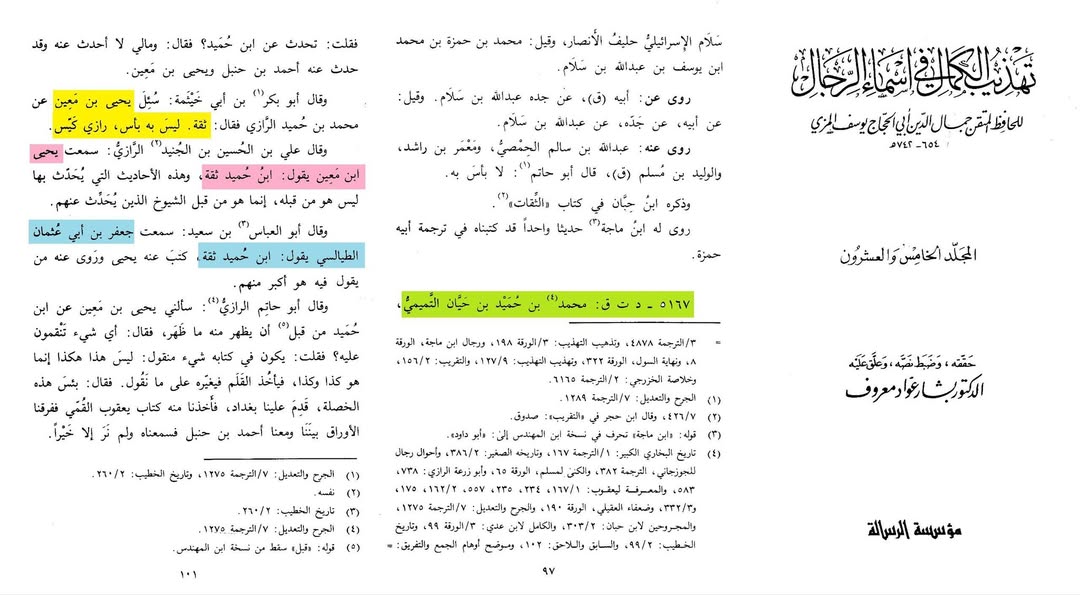 تهذيب الكمال في أسماء الرجال
للحافظ المتقن جمال الدين أبي الحجاج يوسف المزي
٦٥٤ - ٧٤٢ هـ
المجلد الخامس والعشرون
حققه، وضبط نصه، وعلق عليه
الدكتور بشار عواد معروف
مؤسسة الرسالة
سَلَام الإِسرائيليُّ حليفُ الأَنصار، وقيل: محمد بن حمزة بن محمد
ابن يوسف بن عبدالله بن سَلَام.
روى عن: أبيه (ق)، عن جده عبدالله بن سَلَام. وقيل:
عن أبيه، عن جَدّه، عن عبدالله بن سَلَام.
روى عنه: عبدالله بن سالم الحِمْصيُّ، ومَعْمَر بن راشد،
والوليد بن مُسلم (ق)، قال أبو حاتم(١): لا بأسَ به.
وذكره ابنُ حِبَّان في كتاب «الثِّقات»(٢).
روى له ابنُ ماجة(٣) حديثا واحداً قد كتبناه في ترجمة أبيه
حمزة.
٥١٦٧ ـ د ت ق: محمد(٤) بن حُمَيْد بن حَيَّان التَّميميُّ،
= ٣/الترجمة ٤٨٧٨، وتذهيب التهذيب: ٣/الورقة ١٩٨، ورجال ابن ماجة، الورقة
٨، ونهاية السول، الورقة ٣٢٢، وتهذيب التهذيب: ١٢٧/٩، والتقريب: ١٥٦/٢،
وخلاصة الخزرجي: ٢/الترجمة ٦١٦٥.
(١) الجرح والتعديل: ٧/الترجمة ١٢٨٩.
(٢) ٤٢٦/٧، وقال ابن حجر في «التقريب»: صدوق.
(٣) قوله: «ابن ماجة» تحرف في نسخة ابن المهندس إلى: «أبو داود».
(٤) تاريخ البخاري الكبير: ١/الترجمة ١٦٧، وتاريخه الصغير: ٣٨٦/٢، وأحوال رجال
للجوزجاني، الترجمة ٣٨٢، والكنى لمسلم، الورقة ٦٥، وأبو زرعة الرازي: ٧٣٨،
٥٨٣، والمعرفة ليعقوب: ١٦٧/١، ٢٣٤، ٢٣٥، ٥٥٧، ١٦٢/٢، ١٧٥،
و٣٣٢/٣، وضعفاء العقيلي، الورقة ١٩٠، والجرح والتعديل: ٧/الترجمة ١٢٧٥،
والمجروحين لابن حبان: ٣٠٣/٢، والكامل لابن عدي: ٣/الورقة ٩٩، وتاريخ
الخطيب: ٩٩/٢، والسابق واللاحق: ١٠٢، وموضح أوهام الجمع والتفريق: =
٩٧
فقلت: تحدث عن ابن حُمَيد؟ فقال: ومالي لا أحدث عنه وقد
حدث عنه أحمد بن حنبل ويحيى بن مَعِين.
وقال أبو بكر(١) بن أبي خَيْثَمة: سُئِلَ يحيى بن مَعِين عن
محمد بن حُميد الرَّازي فقال: ثقة. ليسَ به بأس، رازي كَيِّس.
وقال علي بن الحُسين بن الجُنيد(٢) الرَّازيُّ: سمعت يحيى
ابن مَعِين يقول: ابنُ حُميد ثقة، وهذه الأحاديث التي يُحَدِّث بها
ليس هو من قبله، إنما هو من قبل الشيوخ الذين يُحَدِّث عنهم.
وقال أبو العباس(٣) بن سعيد: سمعت جعفر بن أبي عُثمان
الطيالسي يقول: ابن حُميد ثقة، كتبَ عنه يحيى ورَوى عنه من
يقول فيه هو أكبر منهم.
وقال أبو حاتِم الرازيُّ(٤): سألني يحيى بن مَعِين عن ابن
حُميد من قبل(٥) أن يظهر منه ما ظَهَر، فقال: أي شيء تَنْقمون
عليه؟ فقلت: يكون في كتابه شيء منقول: ليسَ هذا هكذا إنما
هو كذا وكذا، فيأخُذ القَلَم فيغيّره على ما نَقُول. فقال: بئسَ هذه
الخصلة، قَدِمَ علينا بغداد، فأخذنا منه كتاب يعقوب القُمّي ففرقنا
الأوراق بينَنَا ومعنا أحمد بن حنبل فسمعناه ولم نَرَ إلا خَيْراً.
(١) الجرح والتعديل: ٧/الترجمة ١٢٧٥، وتاريخ الخطيب: ٢٦٠/٢.
(٢) نفسه.
(٣) تاريخ الخطيب: ٢٦٠/٢.
(٤) الجرح والتعديل: ٧/الترجمة ١٢٧٥.
(٥) قوله: «قبل» سقط من نسخة ابن المهندس.
١٠١